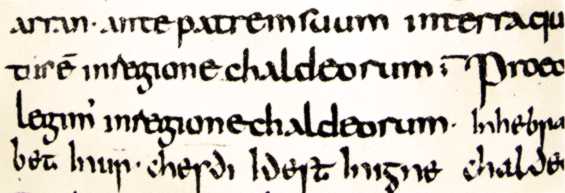 arran · ante patrem suum in terra qu
tus ē in regione chaldeorum ; Pro eo
legim' in regione chaldeorum · In hebra
bet In ur · chesdi Id est In igne chalde